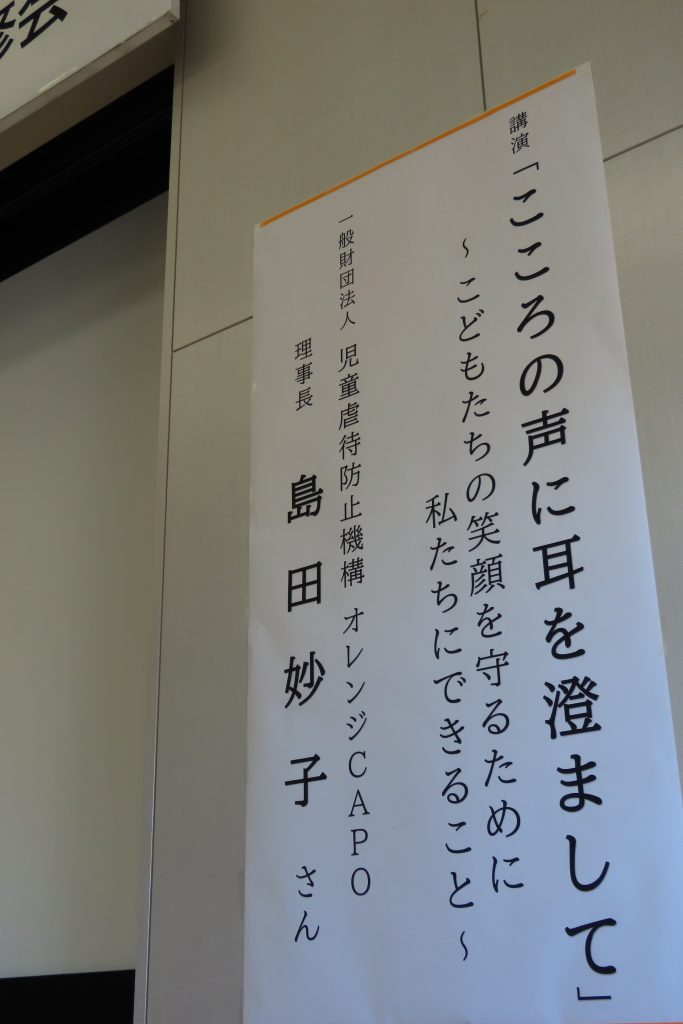 講演「こころの声に耳を澄まして」
～こどもたちの笑顔を守るために
私たちにできること～
一般財団法人 児童虐待防止機構 オレンジCAPO
理事長 島田妙子 さん